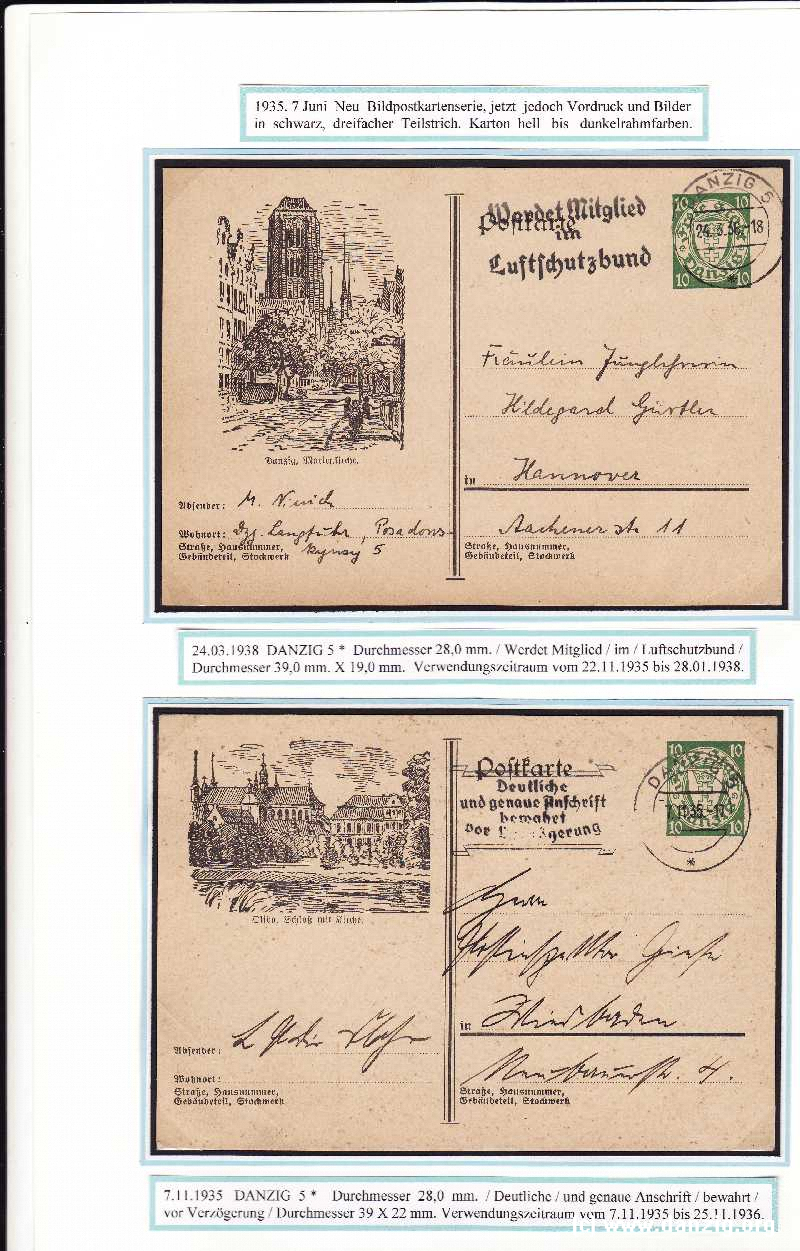 1935. 7 Juni Neu Bildpostkartenserie, jetzt jedoch Vordruck und Bilder
in schwarz, dreifacher Teilstrich. Karton hell bis dunkelrahmfarben.
Werdet Mitglied
Postkarte
im
Luftschutzbund
DANZIG 5
24.3.38-18
*
10 10
Danzig
10 10
Danzig, Marienkirche.
Fräulein Junglehrerin
Hildegard Gürtler
in Hannover
Aachener str 11
Straße, Hausnummer,
Gebäudeteil, Stockwerk
Absender: M.
Wohnort: Dzg. Langfuhr, Posadows-
Straße, Hausnummer, kyweg 5
Gebäudeteil, Stockwerk
24.03.1938 DANZIG 5 * Durchmesser 28,0 mm. / Werdet Mitglied / im / Luftschutzbund /
Durchmesser 39,0 mm. X 19,0 mm. Verwendungszeitraum vom 22.11.1935 bis 28.01.1938.
Postkarte
Deutliche
und genaue Anschrift
bewahrt
vor Verzögerung
DANZIG 5
7.11.35-17
*
10 10
10 10
Oliva, Schloß mit Kirche.
Herrn
in Wiesbaden
4.
Straße, Hausnummer,
Gebäudeteil, Stockwerk
Absender:
Wohnort:
Straße, Hausnummer,
Gebäudeteil, Stockwerk
7.11.1935 DANZIG 5 * Durchmesser 28,0 mm. / Deutliche / und genaue Anschrift / bewahrt /
vor Verzögerung / Durchmesser 39 X 22 mm. Verwendungszeitraum vom 7.11.1935 bis 25.11.1936.
(c) www.danzig.org